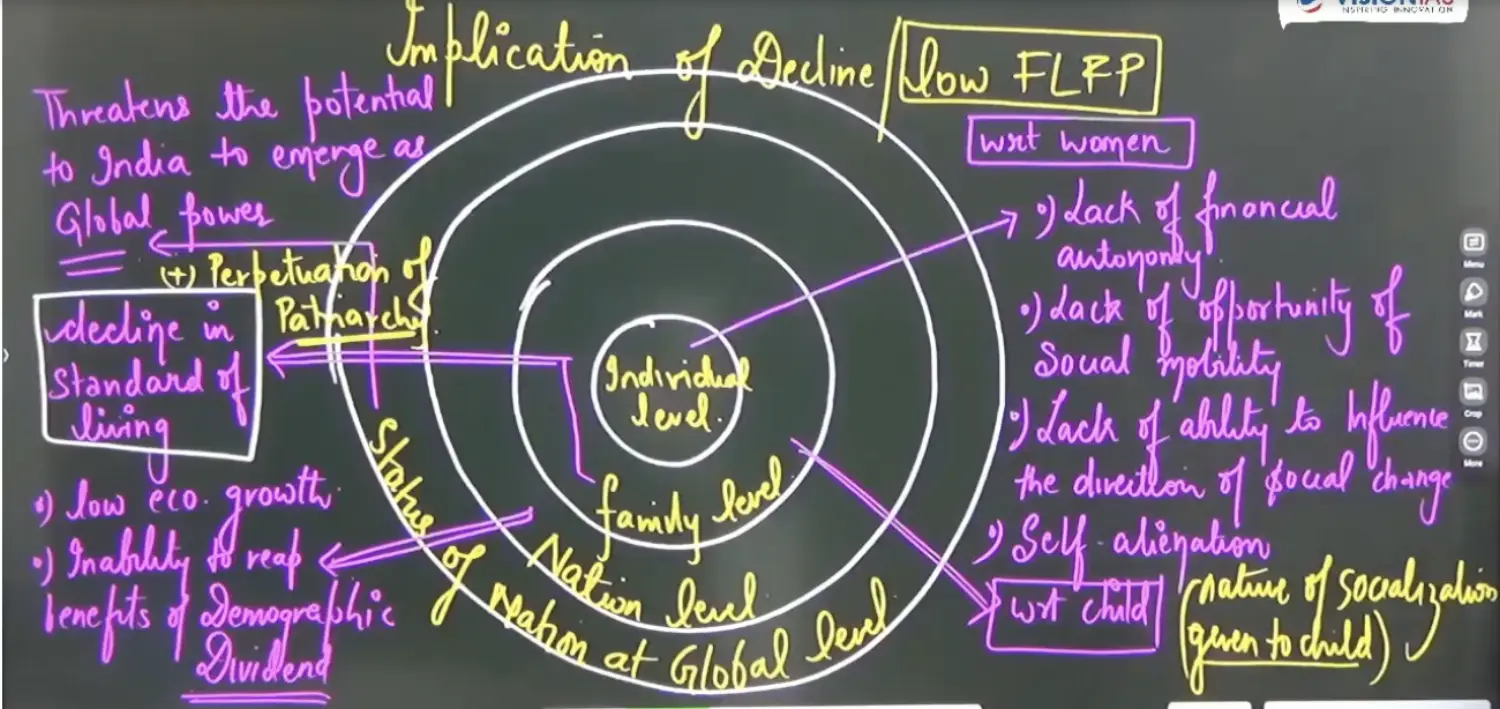 VISIONIAS
INSPIRING INNOVATION
Implication of Decline / low FLFP
Threatens the potential
to India to emerge as
Global power
(+) Perpetuation of
Patriarchy
decline in
standard of
living
•) low eco. growth
•) Inability to reap
benefits of Demographic
Dividend
Individual
level.
family level
Nation level
Status of Nation at Global level
wrt women
•) Lack of financial
autonomy
•) Lack of opportunity of
Social mobility
•) Lack of ability to Influence
the direction of social change
•) Self-alienation
wrt child
(nature of socialization
given to child)
Menu
Mark
Timer
Crop
More